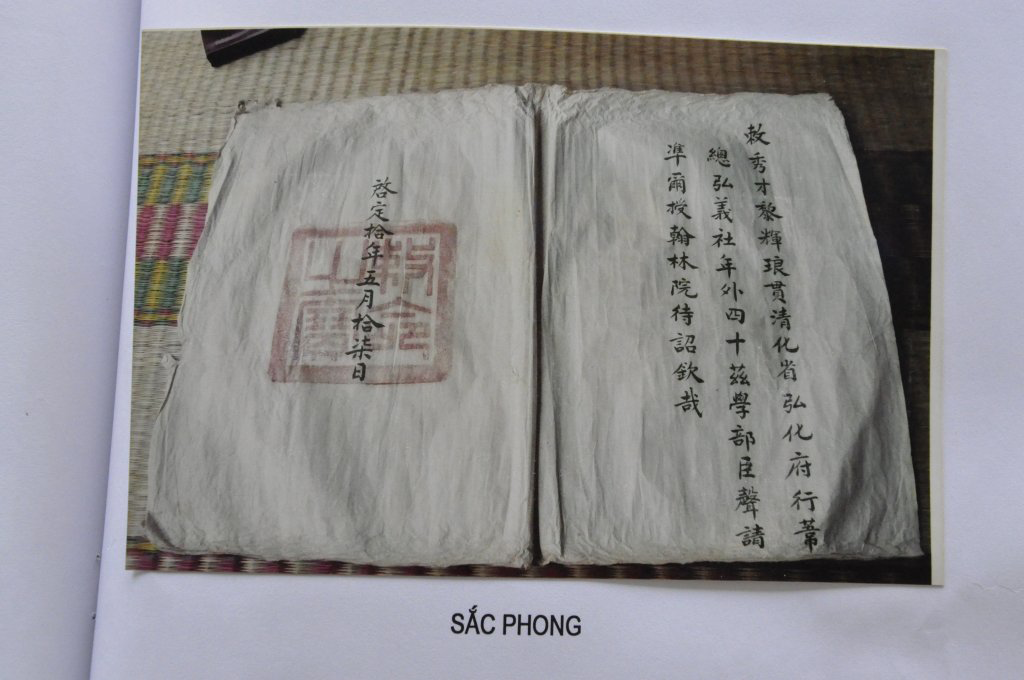 敕秀才黎輝琅貫清化省弘化府行葦
總弘義社年外四十茲學部臣聲請
準爾授翰林院待詔欽哉
啓定拾年五月拾柒日
敕命之寶
SẮC PHONG